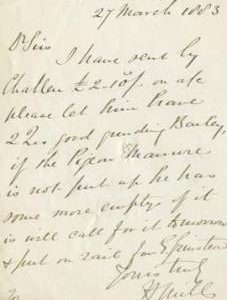 27 March 1883
Dr Sir
I have sent by
Challen £2-10/- on a/c
please let him have
22 good grinding Barley,
if the Pigeon Manure
is not put up he has
some more emptys of it
is will call for it tomorrow
& put on rail for E Grinstead
Yours truly
H Mills
To